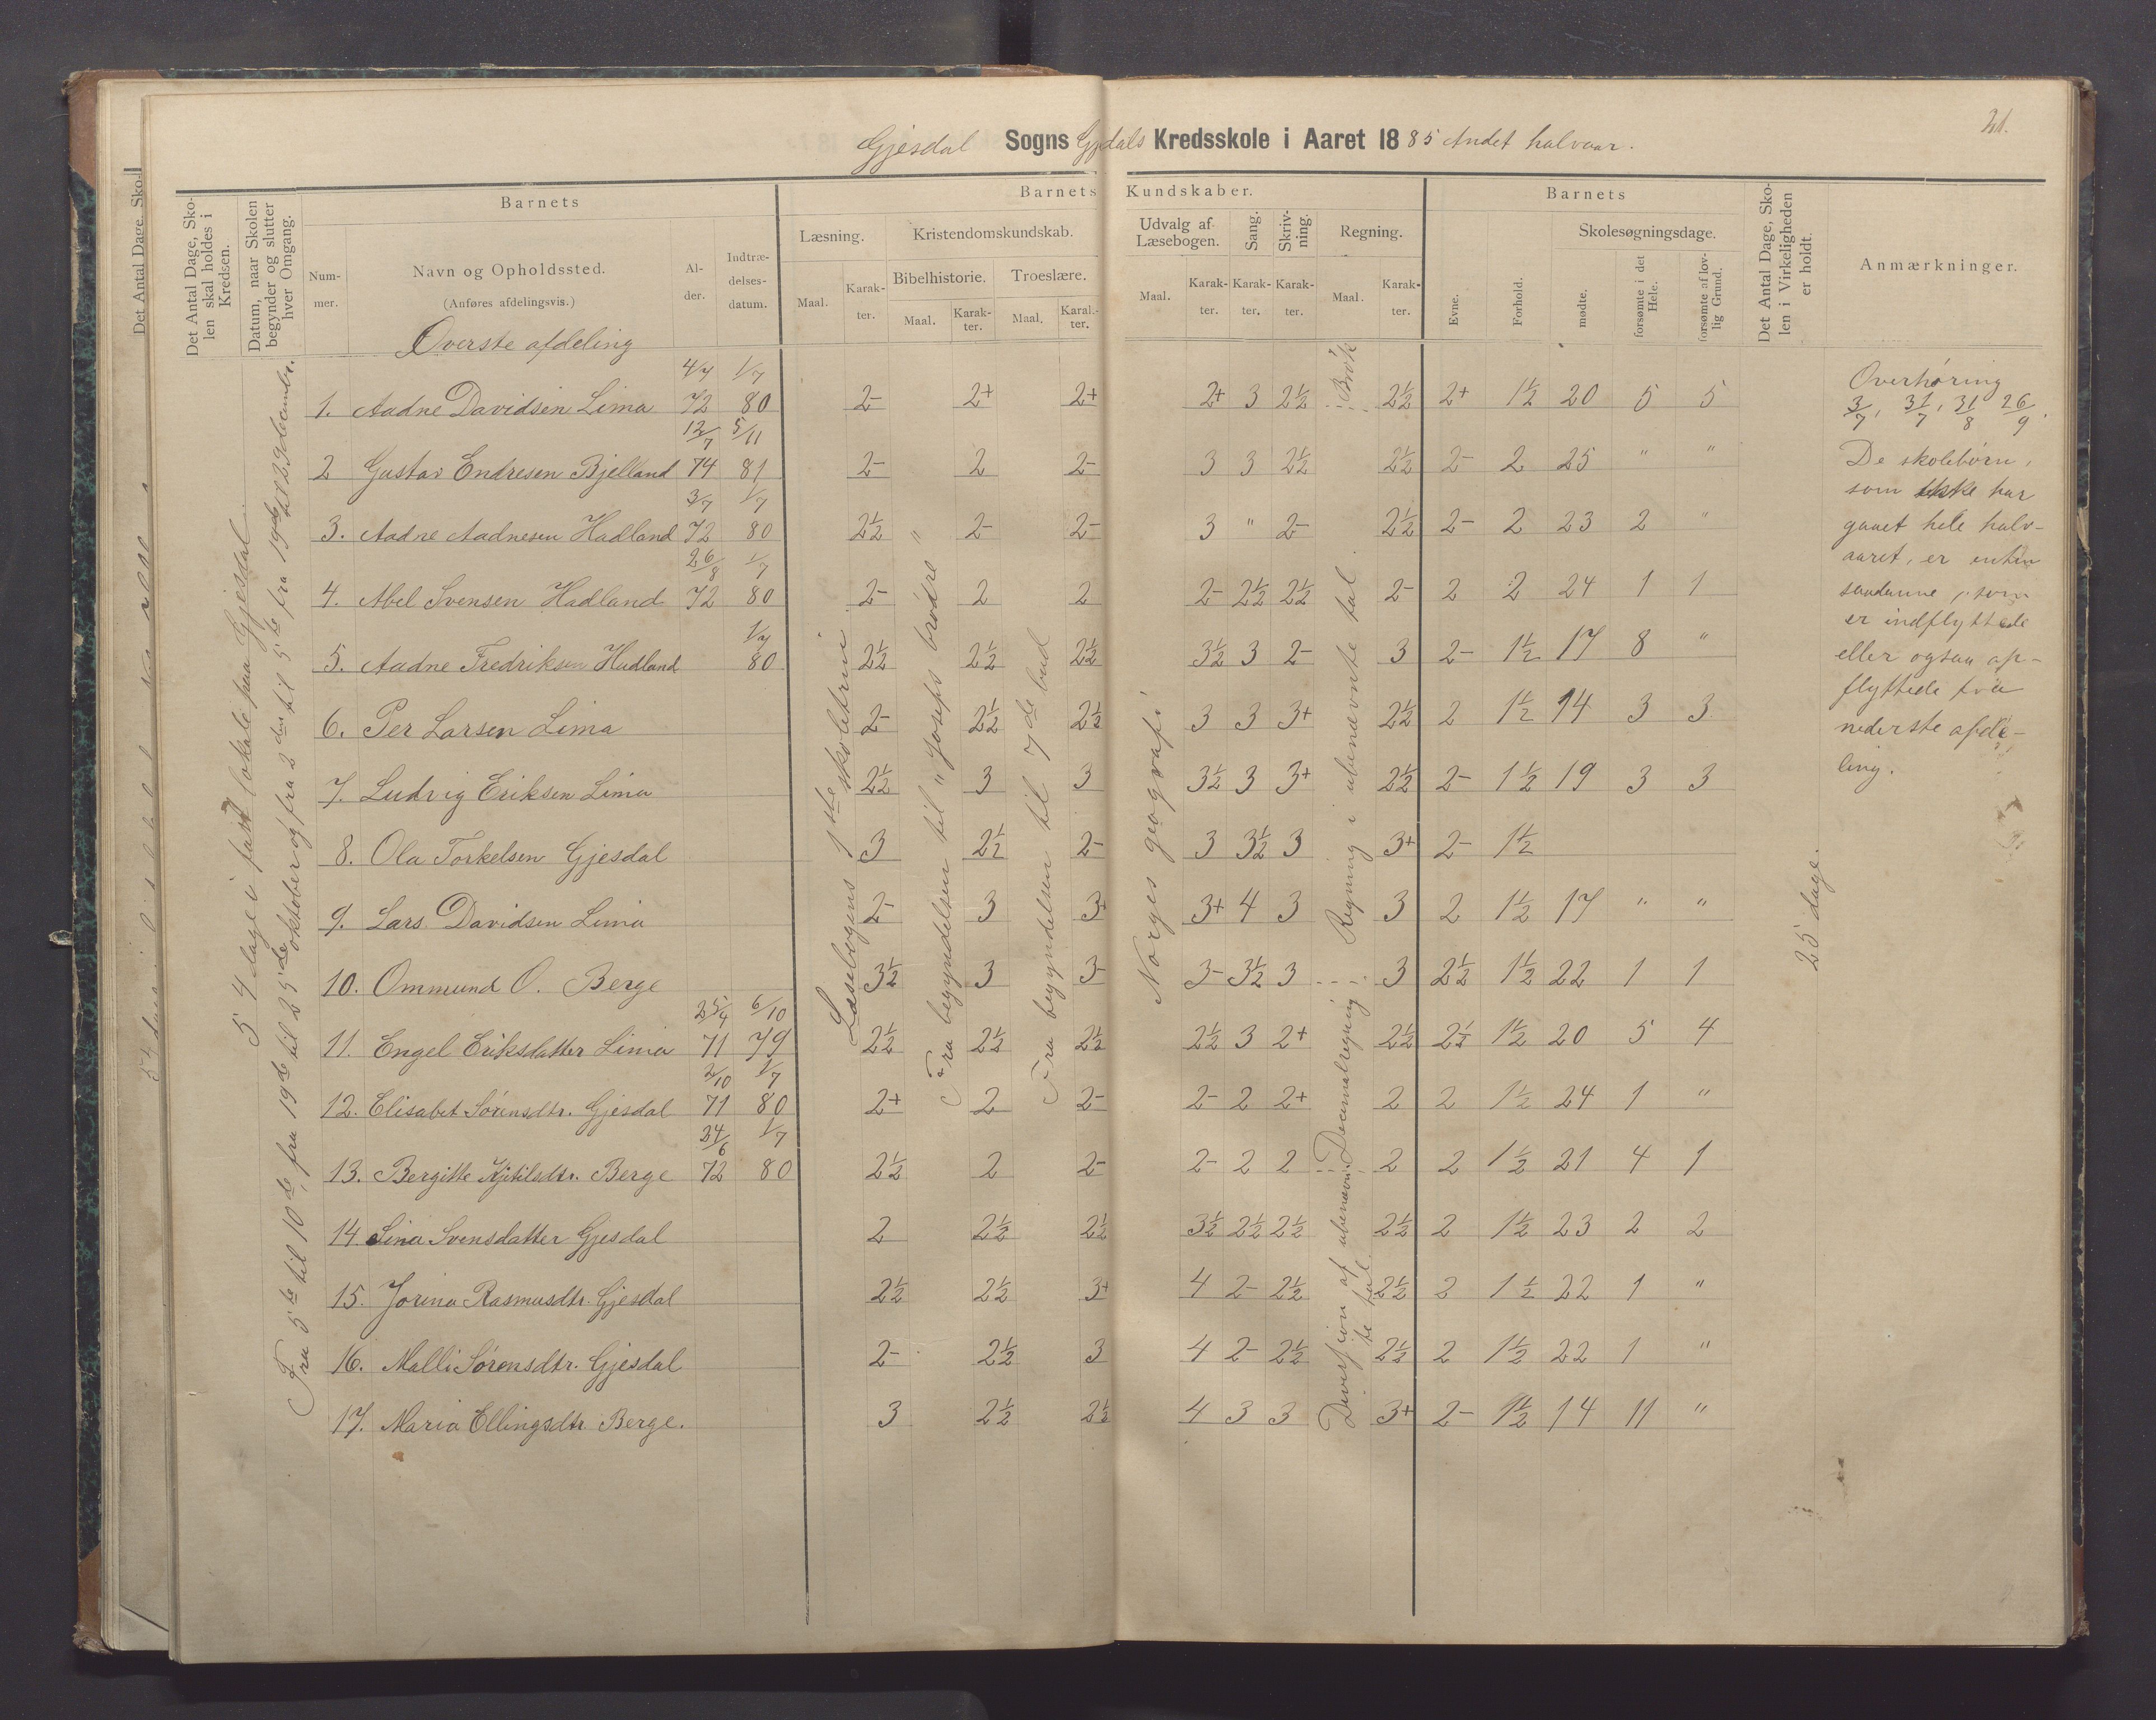 21.
Gjesdal Sogns Gjdals Kredsskole i Aaret 1885 Andet halvaar.
Det Antal Dage, Skolen skal holdes i Kredsen.
Datum, naar Skolen begynder og slutter hver Omgang.
Barnets
Nummer.
Navn og Opholdssted.
(Anføres afdelingsvis.)
Alder.
Indtrædelsesdatum.
Barnets Kundskaber.
Læsning.
Maal. Karakter.
Kristendomskundskab.
Bibelhistorie. Troeslære.
Maal. Karakter. Maal. Karakter.
Udvalg af Læsebogen.
Maal. Karakter.
Sang.
Karakter.
Skrivning.
Karakter.
Regning.
Maal. Karakter.
Barnets
Evne.
Forhold.
Skolesøgningsdage.
mødte.
forsømte i det Hele.
forsømte af lovlig Grund.
Det Antal Dage, Skolen i Virkeligheden er holdt.
Anmærkninger.
Øverste afdeling
1. Aadne Davidsen Lima 4/7 72 1/7 80 2- 2+ 2+ 2+ 3 2½ 2½ 2+ 1½ 20 5 5
2 Gustav Endresen Bjelland 12/7 74 5/11 81 2- 2 2- 3 3 2½ 2½ 2- 2 25 " "
3. Aadne Aadnesen Hadland 3/7 72 1/7 80 2½ 2- 2- 3 " 2- 2½ 2- 2 23 2 "
4. Abel Svensen Hadland 26/8 72 1/7 80 2- 2 2 2- 2½ 2½ 2- 2 2 24 1 1
5. Aadne Fredriksen Hadland 1/7 80 2½ 2½ 2½ 3½ 3 2- 3 2- 1½ 17 8 "
6. Per Larsen Lima 2- 2½ 2½ 3 3 3+ 2½ 2 1½ 14 3 3
7. Ludvig Eriksen Lima 2½ 3 3 3½ 3 3+ 2½ 2- 1½ 19 3 3
8. Ola Torkelsen Gjesdal 3 2½ 2- 3 3½ 3 3+ 2- 1½
9. Lars Davidsen Lima 2- 3 3+ 3+ 4 3 3 2 1½ 17 " "
10. Ommund O. Berge 3½ 3 3- 3- 3½ 3 3 2½ 1½ 22 1 1
11. Engel Eriksdatter Lima 25/4 71 6/10 79 2½ 2½ 2½ 2½ 3 2+ 2½ 2½ 1½ 20 5 4
12. Elisabet Sørensdtr. Gjesdal 2/10 71 1/7 80 2+ 2 2- 2- 2 2+ 2 2 1½ 24 1 "
13. Bergitte Kjitilsdtr. Berge 24/6 72 1/7 80 2½ 2 2- 2- 2 2 2 2 1½ 21 4 1
14 Lina Svensdatter Gjesdal 2 2½ 2½ 3½ 2½ 2½ 2½ 2 1½ 23 2 2
15. Jorina Rasmusdtr. Gjesdal 2½ 2½ 3+ 4 2- 2½ 2½ 2 1½ 22 1 "
16. Malli Sørensdtr. Gjesdal 2- 2½ 3 4 2- 2½ 2½ 2 1½ 22 1 "
17. Maria Ellingsdtr. Berge. 3 2½ 2½ 4 3 3 3+ 2- 1½ 14 11 "
54 dage i fast lokale paa Gjesdal.
Fra 5te til 10de, fra 19de til 25de oktober og fra 2den til 5te fra 19de til 29 december.
Læsebogens 1ste skoletrin
Fra begyndelsen til "Josefs brødre"
Fra begyndelsen til 7de bud
Norges geografi
Brøk
Regning i ubenævnte tal.
Decimalregning
Division af ubenævnte tal.
25 dage.
Overhøring
3/7, 31/7, 31/8 26/9.
De skolebørn,
som ikke har
gaaet hele halv-
aaret, er enten
saadanne, som
er indflyttede
eller ogsaa op-
flyttede fra
nederste afde-
ling.
Det Antal Dage, Sko-